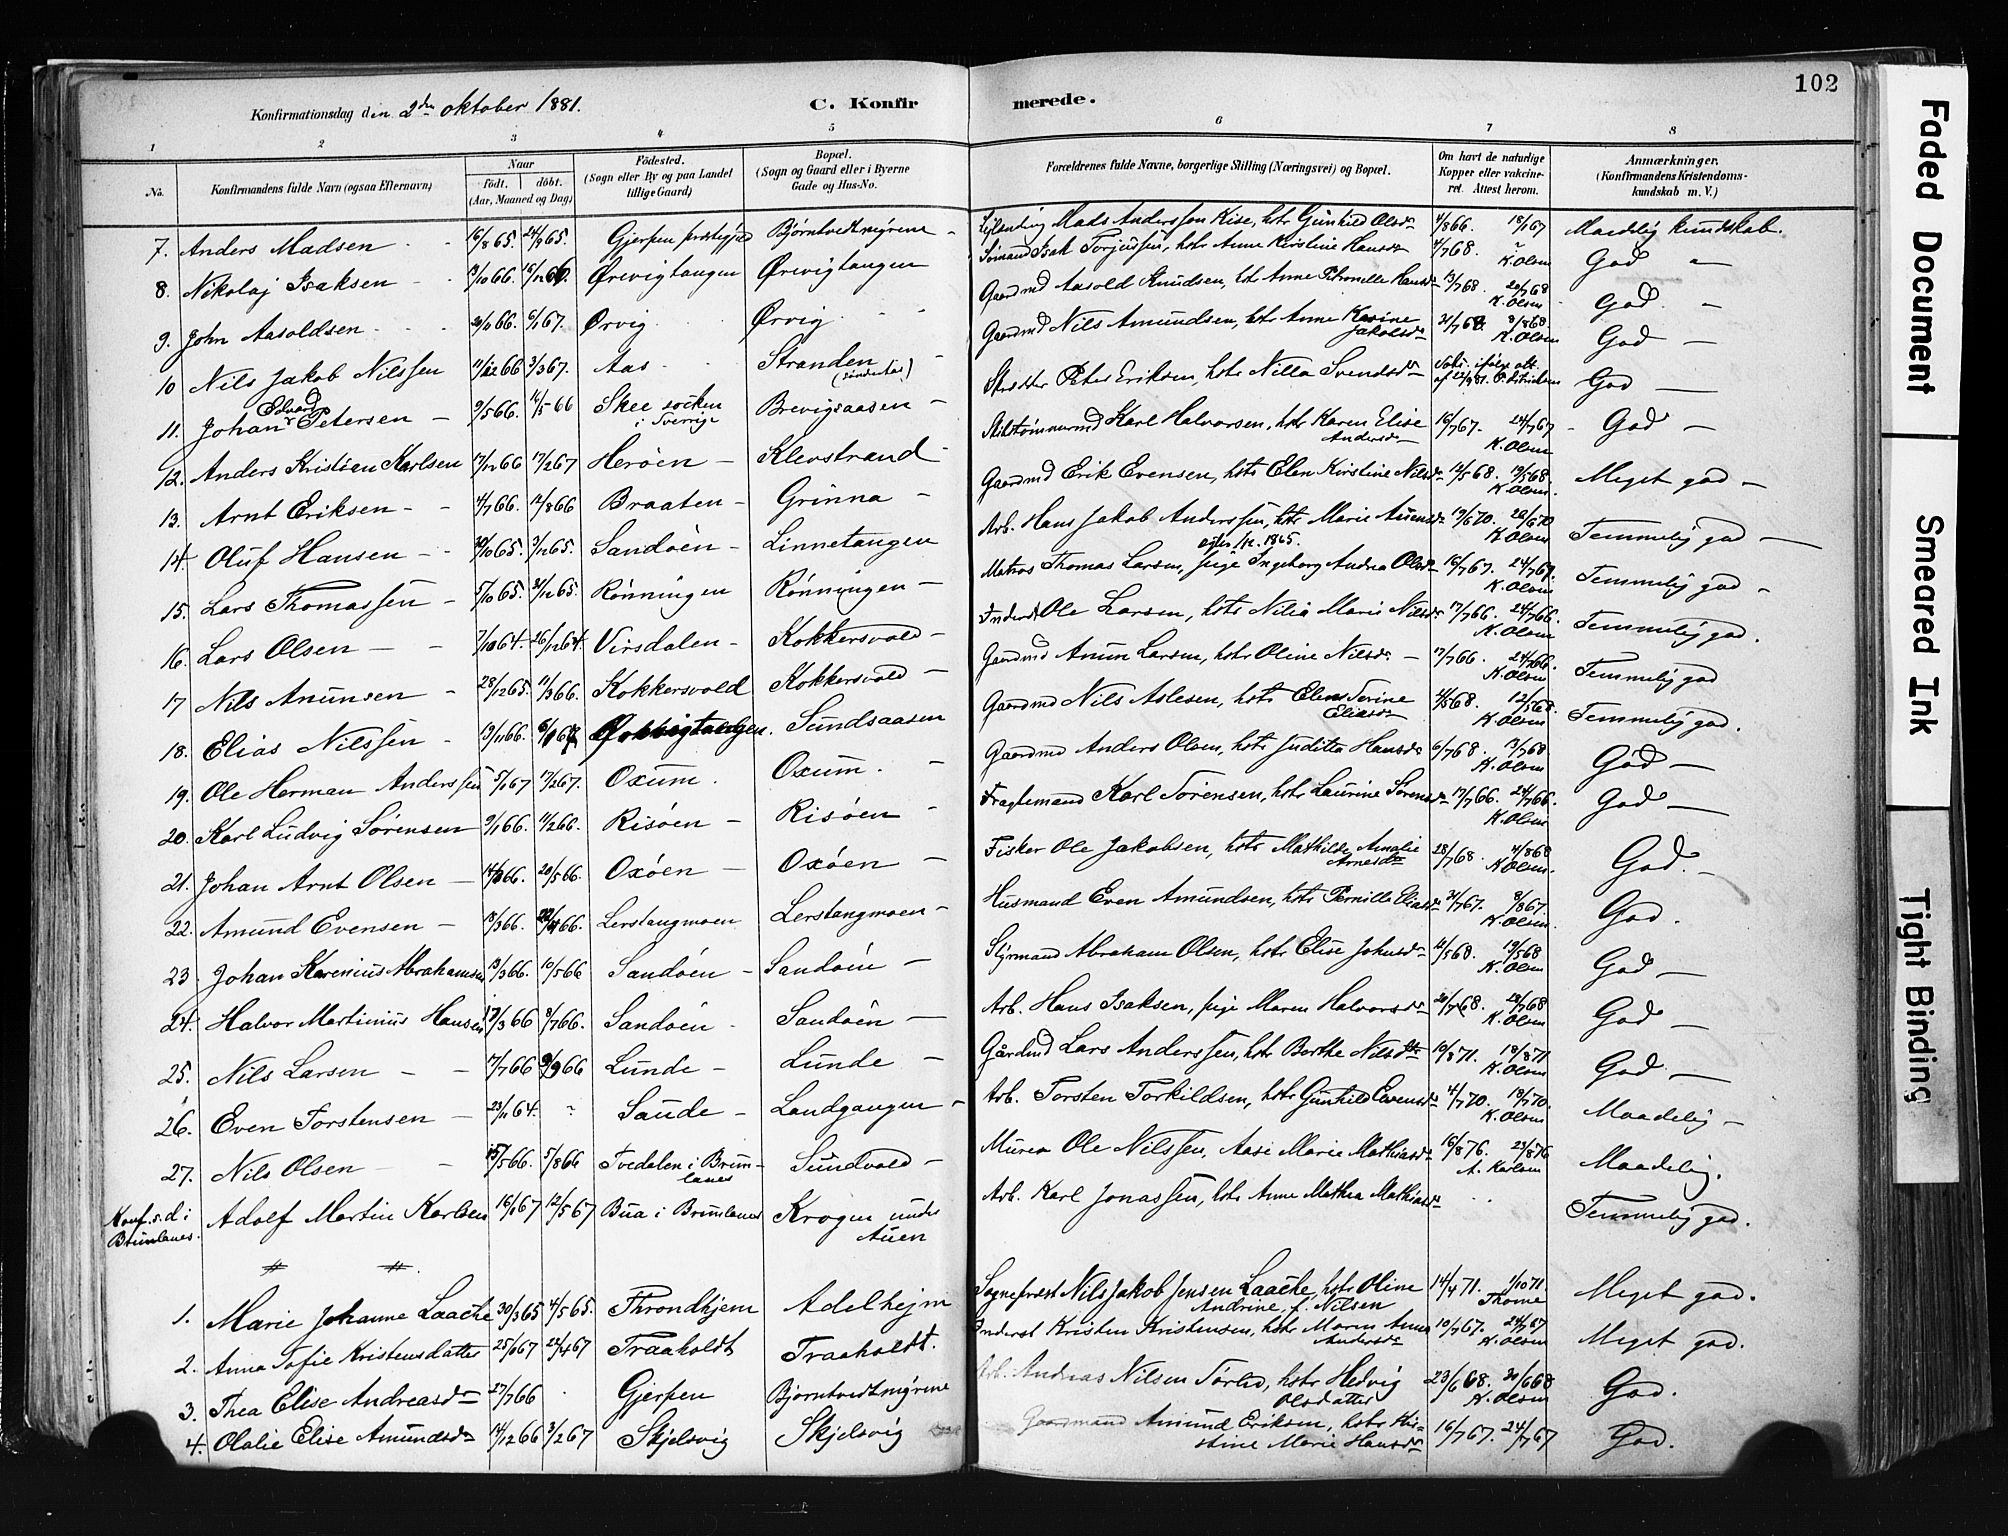 102
Konfirmationsdag den 2den oktober 1881.
C. Konfirmerede.
1 2 3 4 5 6 7 8
No. Konfirmandens fulde Navn (ogsaa Efternavn) Naar født. døbt. (Aar, Maaned og Dag) Fødested. (Sogn eller By og paa Landet tillige Gaard) Bopæl. (Sogn og Gaard eller i Byerne Gade og Hus-No. Forældrenes fulde Navne, borgerlige Stilling (Næringsvei) og Bopæl. Om havt de naturlige Kopper eller vakcineret. Attest herom. Anmærkninger. (Konfirmandens Kristendomskundskab m. V.)
7. Anders Madsen 16/8 65. 24/9 65. Gjerpen Bjørntvedtmyrene Mads Anderssen Kise, hstr Gunhild Olsdr 18/1 67 Maadelig kundskab.
8. Nikolaj Isaksen 13/10 66. Ørevigtangen Ørevigtangen Sømand Isak Torjussen, hstr Anne Kirstine Hansdr 4/7 68. K. Olsen God
9. John Aasoldsen 6/1 67. Ørvig Ørvig Gaardmd Aasold Knudsen, hstr Anne Petronelle Hansdr 13/7 68. 20/7 68 K. Olsen God
10 Nils Jakob Nilssen 11/12 66 3/3 67. Aas Stranden Gaardmd Nils Amundsen, hstr Anne Karine Jakobsdr 31/7 68. 8/8 68. K. Olsen God
11. Johan Edvard Petersen 9/5 66. Skee socken i Sverige Brevigsaasen Peter Eriksen, hstr Nilla Svendsdr God
12. Anders Kristian Karlsen 17/2 67 Herøen Klevstrand Karl Halvorsen, hstr Karen Elise Andersdr 16/7 67. 24/7 67 K. Olsen God
13. Arnt Eriksen 4/7 66. 12/8 66 Braaten Grinna Gaardmd Erik Evensen, hstr Elen Kirstine Nilsdr 12/5 68. 19/5 68. K. Olsen. Meget god
14. Oluf Hansen Sandøen Linnetangen Arb. Hans Jakob Anderssen, hstr Marie 19/6 70. 26/6 70 K. Olsen Temmelig god
15. Lars Thomassen 5/10 65. 31/12 65. Rønningen Rønningen Matros Thomas Larsen, pige Ingeborg Andrea Olsdr 16/7 67. 24/7 67. K. Olsen Temmelig god
16. Lars Olsen 7/10 64. 26/12 64. Virsdalen Kokkersvold Inderst Ole Larsen, hstr Nilia Marie Nilsdr 17/7 66. 24/7 66. K. Olsen Temmelig god.
17 Nils Anunsen 28/12 65. 11/3 66. Kokkersvold Kokkersvold Gaardmd Anun Larsen, hstr Oline Nilsdr 17/7 66. 24/7 66. K. Olsen. Temmelig god
18. Elias Nilssen 19/11 66. 6/1 67 Sundsaasen Gaardmd Nils Aslesen, hstr Elen Serine Eliasdr 4/5 68. 12/5 68. K. Olsen Temmelig god.
19. Ole Herman Anderssen 5/1 67 17/2 67. Oxum. Oxum. Gaardmd Anders Olsen, hstr Juditta Hansdr 6/7 68. 13/7 68 K. Olsen God
20. Karl Ludvig Sørensen 9/1 66. 11/2 66. Risøen Risøen Fragtemand Karl Sørensen, hstr Laurine Sørensdr 17/7 66. 24/7 66. K. Olsen God
21. Johan Arnt Olsen 20/5 66. Oxøen Oxøen Fisker Ole Jakobsen, hstr Mathilde Amalie Arnesdtr 28/7 68. 4/8 68 K. Olsen. God.
22. Amund Evensen 18/3 66. Lerstangmoen Lerstangmoen Husmand Even Amundsen, hstr Pernille Eliasdr 31/7 67. 8/8 67. K. Olsen God.
23. Johan Karenius Abrahamsen 13/3 66. 10/5 66 Sandøen Sandøen Styrmand Abraham Olsen, hstr Elise Johnsdr 12/5 68. 19/5 68 K. Olsen God
24. Halvor Martinius Hansen 8/7 66. Sandøen Sandøen Arb. Hans Isaksen, pige Maren Halvorsdr 20/7 68. 28/7 68 K. Olsen God
25. Nils Larsen 17/7 66 9/9 66 Lunde Lunde Gårdmd Lars Anderssen, hstr Berthe Nilsdtr 10/8 71. 18/8 71 K. Olsen. God
26. Even Torstensen 23/11 64. Saude Landgangen Arb. Torsten Torkildsen, hstr Gunhild Evensdr 4/7 70. 13/7 70. K. Olsen Maadelig
27. Nils Olsen 15/5 66. 5/8 66 Tvedalen i Brunlanes Sundvold Murer Ole Nilssen, Aase Marie Mathiasdr 16/8 76. 23/8 76. A. Karlsen Maadelig.
Konf. s. d. i Brunlanes. Adolf Martin Karlsen 16/1 67 12/5 67 Bua i Brunlanes Krogen under Auen Arb. Karl Jonassen, hstr Anne Mathea Mathiasdr Temmelig god.
1. Marie Johanne Laache 30/3 65 4/5 65. Throndhjem Adelhejm Sogneprest Nils Jakob Jensen Laache, hstr Oline Andrine, f. Nilsen 14/4 71. 1/10 71 Thome Meget god.
2. Anna Sofie Kristensdatter 22/4 67 Traaholdt Traaholdt. Inderst Kristen Kristensen, hstr Maren Anne Andersdr 10/7 67. 24/7 67 K. Olsen Meget god.
3. Thea Elise Andreasdr 27/7 66 Gjerpen Bjørntvedtmyrene Arb. Andreas Nilsen Torted, hstr Hedvig Olsdatter 23/6 68. 30/6 68 K. Olsen God.
4. Olalie Elise Amundsdr 14/12 66 3/2 67 Skjelsvig Skjelsvig Gaardmand Amund Eriksen, hstr Kirstine Marie Hansdr 16/7 67. 24/7 67 God.
Faded Document
Smeared Ink
Tight Binding